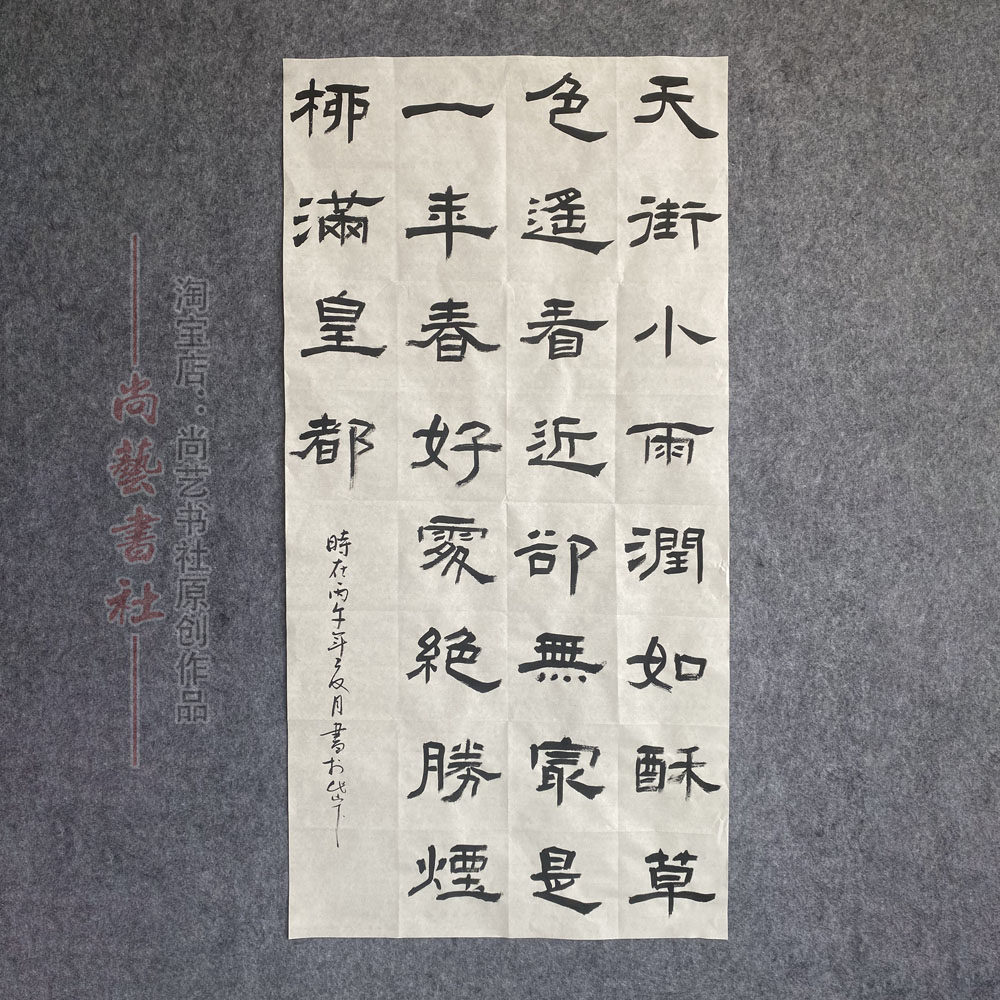 天街小雨潤如酥草
色遙看近卻無㝡是
一年春好處絕勝煙
柳滿皇都
時在丙午年月書於岱下
淘宝店：尚艺书社原创作品
尚藝書社